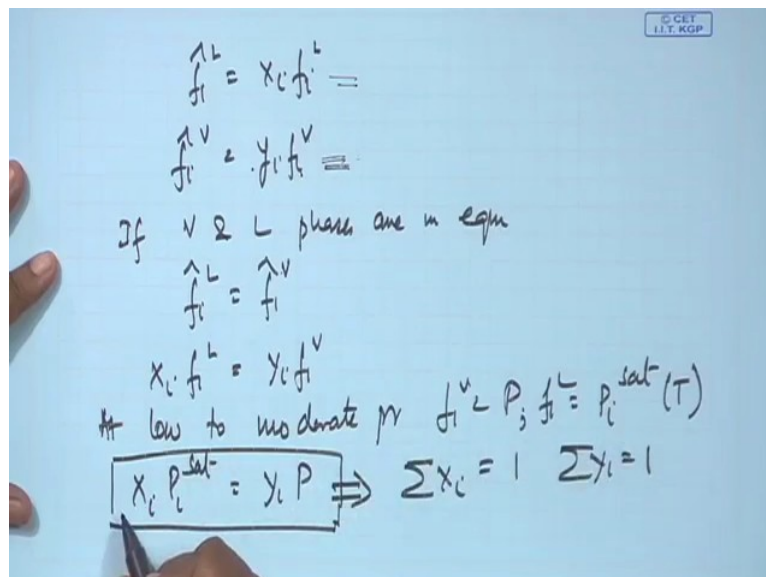 © CET
I.I.T. KGP
f̂ᵢᴸ = xᵢ fᵢᴸ =
f̂ᵢⱽ = yᵢ fᵢⱽ =
If V & L phases are in eqm
f̂ᵢᴸ = f̂ᵢⱽ
xᵢ fᵢᴸ = yᵢ fᵢⱽ
At low to moderate pr fᵢⱽ = P; fᵢᴸ = Pᵢˢᵃᵗ (T)
xᵢ Pᵢˢᵃᵗ = yᵢ P ⇒ Σxᵢ = 1 Σyᵢ = 1